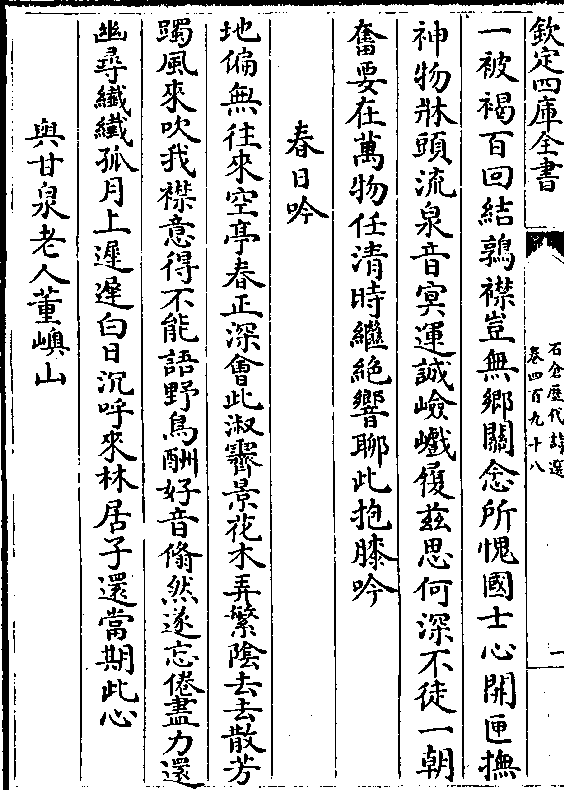 欽定四庫全書
石倉歷代詩選
卷四百九十八
一
一被褐百回結鶉襟豈無鄉關念所愧國士心開匣撫
神物牀頭流泉音㝠運誠嶮巇履兹思何深不徒一朝
奮要在萬物任清時繼絶響聊此抱膝吟
春日吟
地偏無往來空亭春正深會此淑霽景花木弄繁陰去去散芳
躅風來吹我襟意得不能語野鳥酬好音翛然遂忘倦盡力還
幽尋纖纖孤月上遲遲白日沉呼來林居子還當期此心
與甘泉老人董㠘山